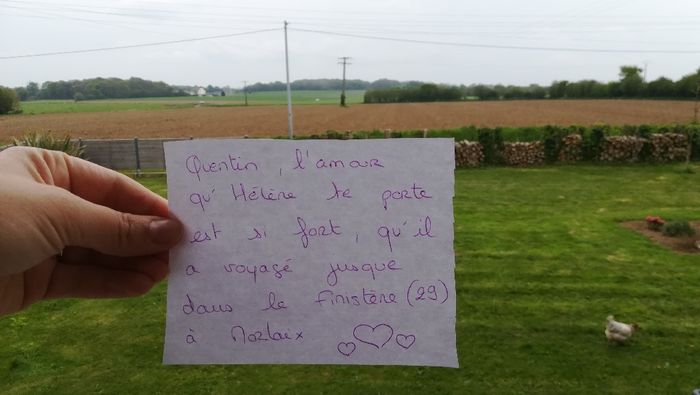 Quentin, l'amour
qu'Hélène te porte
est si fort, qu'il
a voyagé jusque
dans le Finistère (29)
à Morlaix